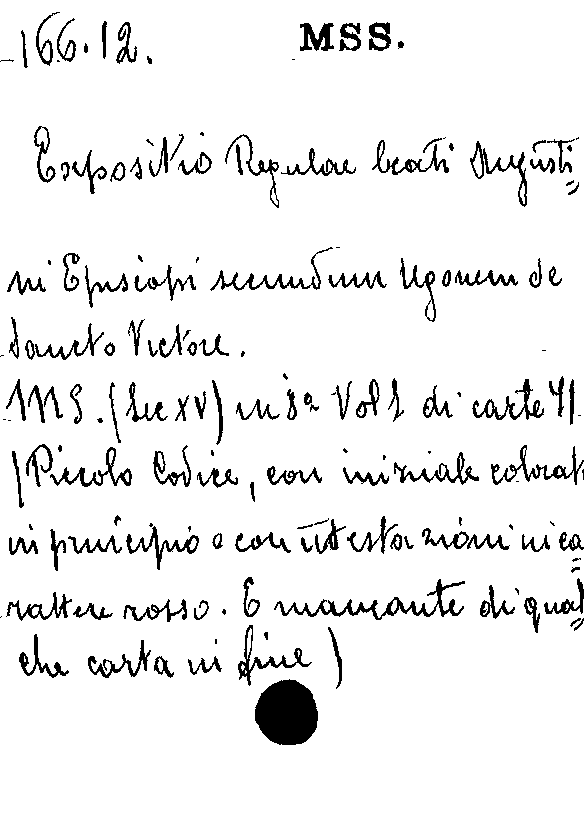 166.12. MSS.
Expositio Regulae beati Augusti=
ni Episcopi secundum Ugonem de
Sancto Victore.
MS. (Sec XV) in 8º Vol 1 di carte 41
(Piccolo Codice, con iniziale colorat
in principio e con intestazioni in ca=
rattere rosso. E mancante di qual=
che carta in fine)